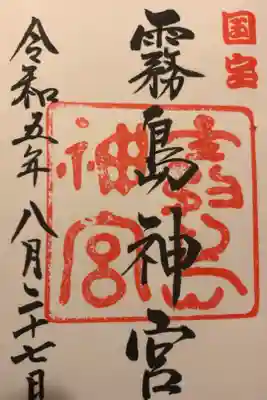 国宝
霧島神宮
霧島
神宮
令和五年八月二十七日